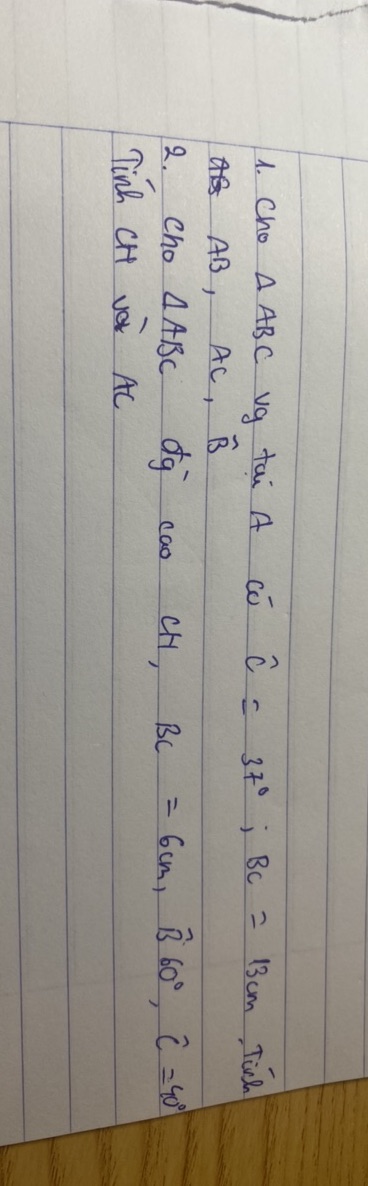 1. Cho Δ ABC vg tại A có Ĉ = 37°; BC = 13cm. Tính
AB, AC, B̂
2. Cho ΔABC đg cao CH, BC = 6cm, B̂ 60°, Ĉ = 40°
Tính CH và AC